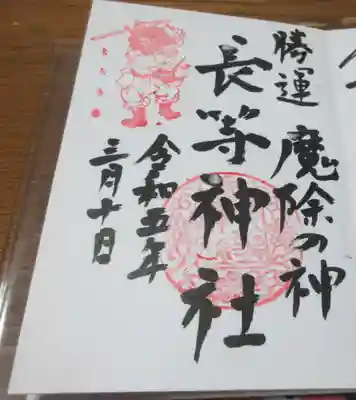 勝運
魔除の神
長等神社
令和五年
三月十日